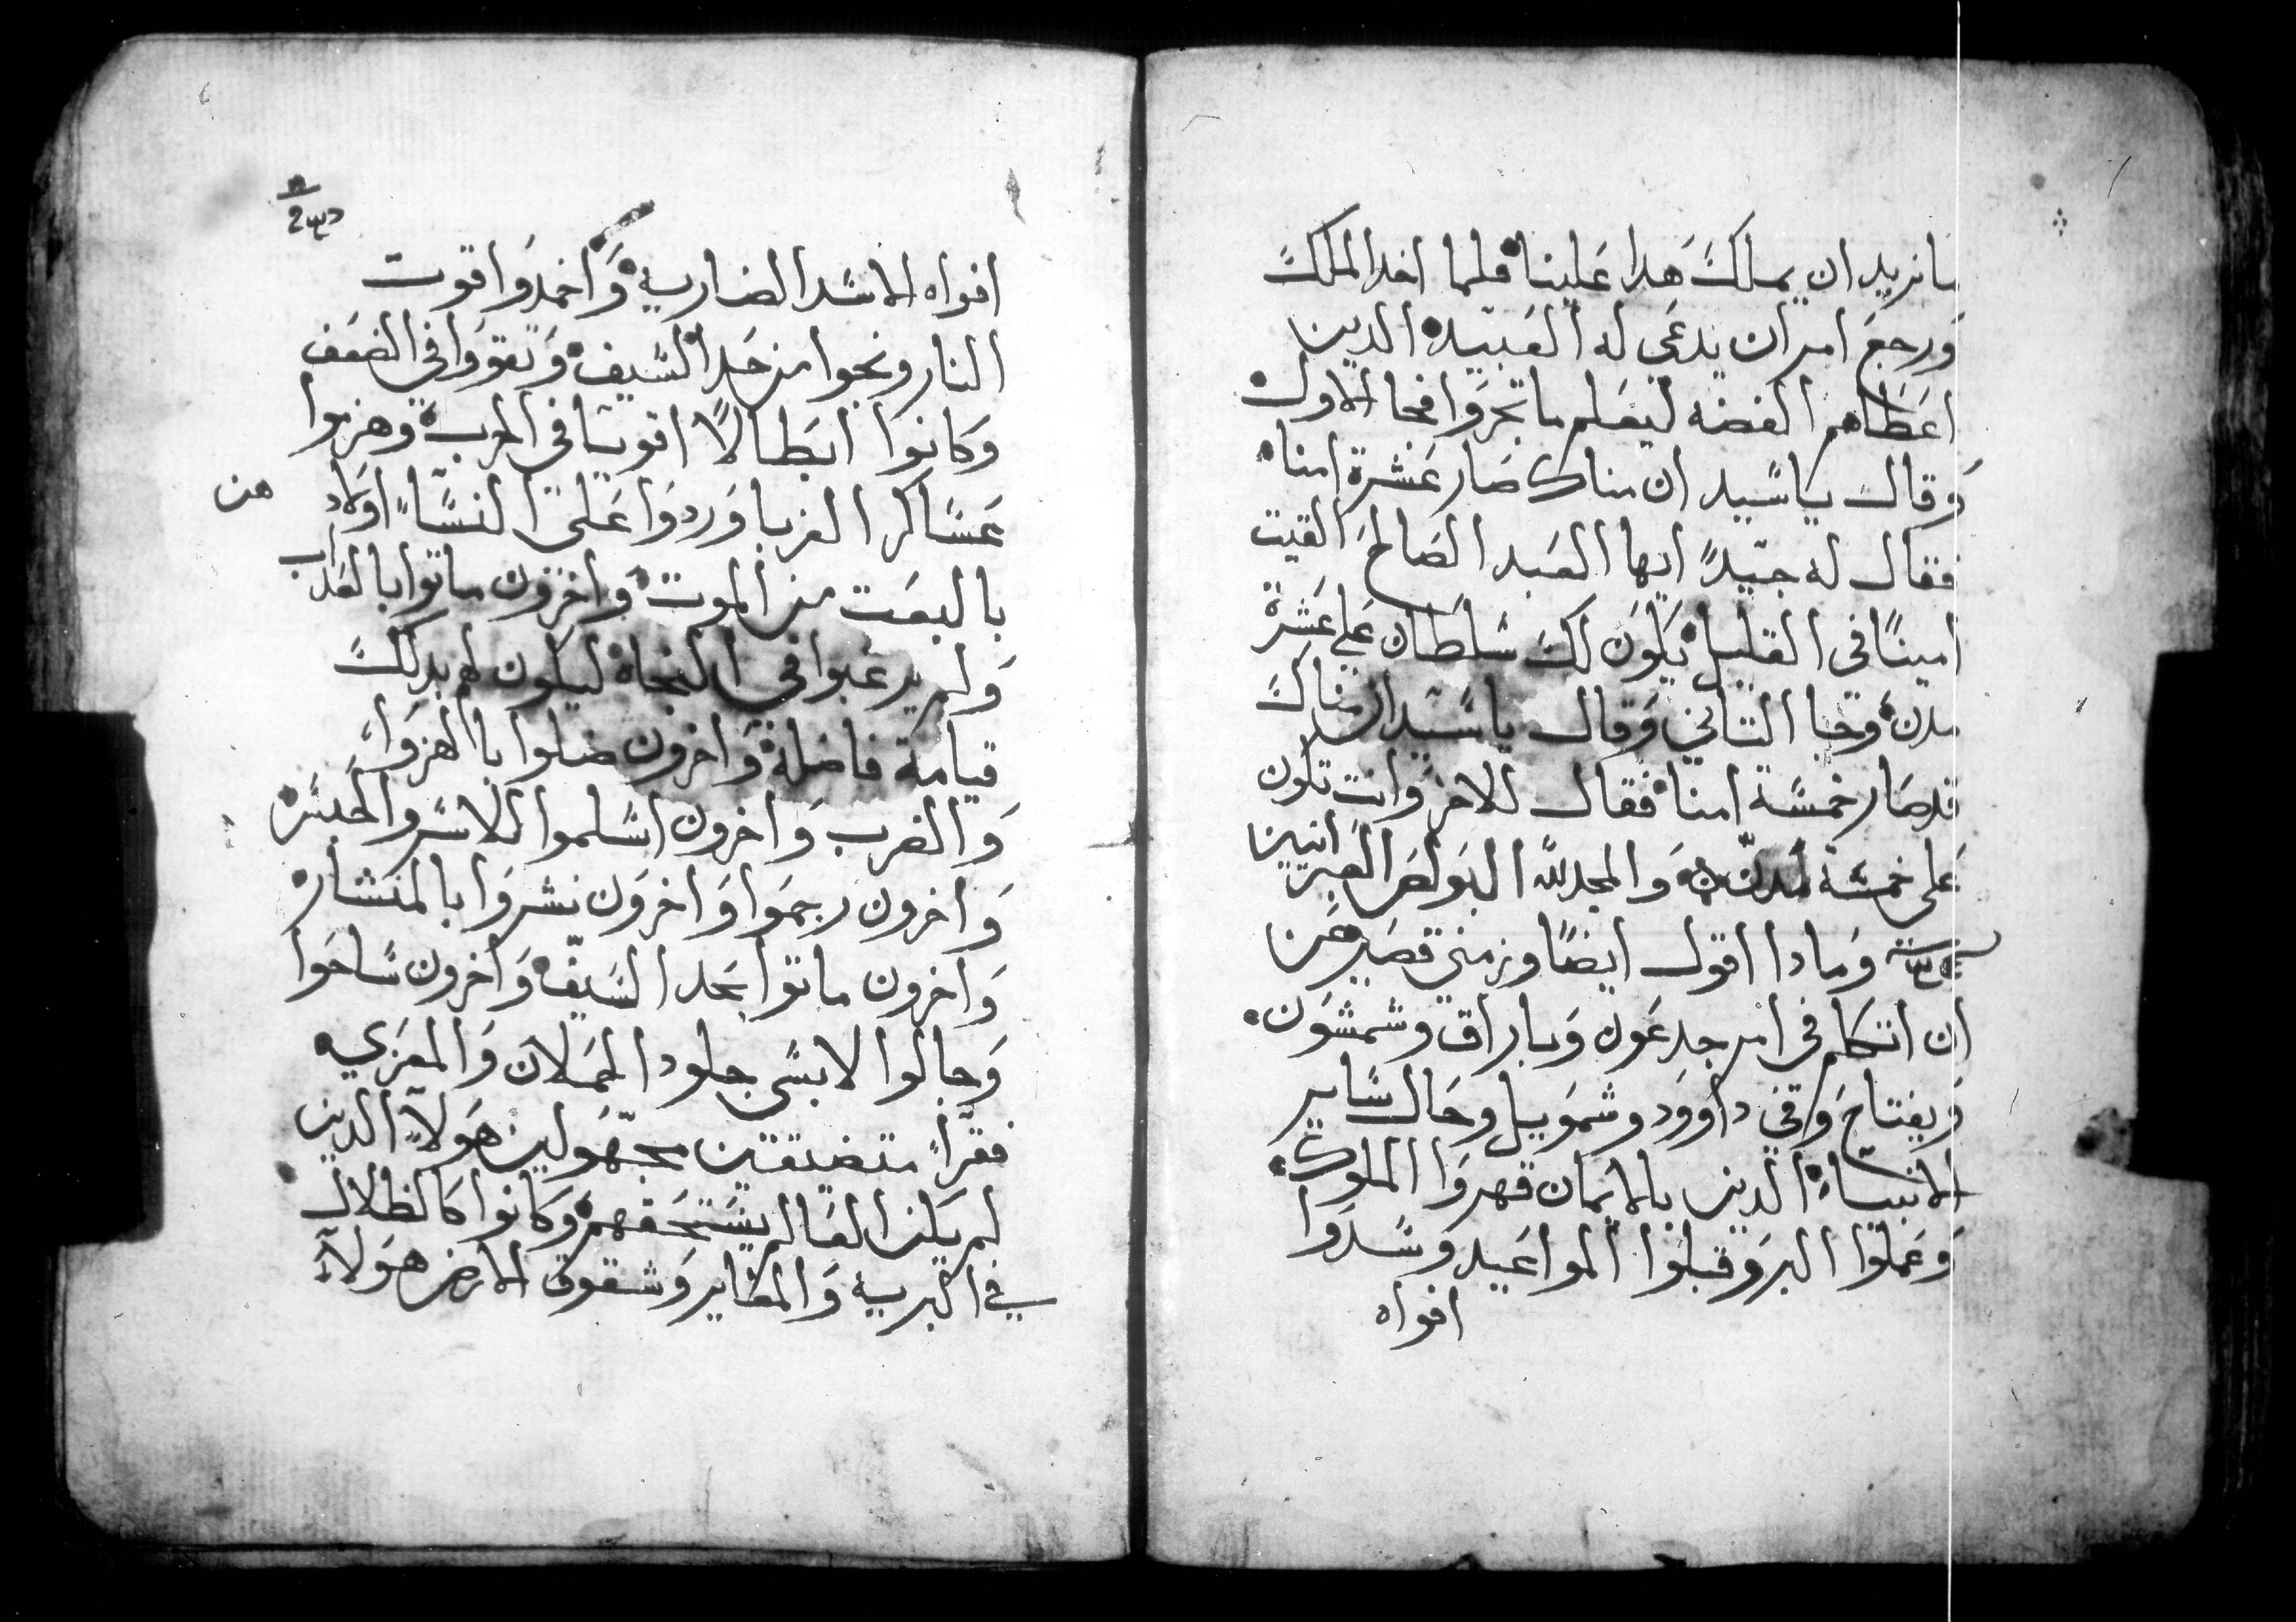 ما نريد ان يملك هدا علينا فلما اخد الملك
ورجع امر ان يدعى له العبيد الدين
اعطاهم الفضه ليعلم ما تجروا فجا الاول
وقال يا سيد ان مناك صار عشرة امنا
فقال له جيدًا ايها العبد الصالح القيت
امينًا في القليل يكون لك سلطان على عشرة
مدن وجا التاني وقال يا سيد ان مناك
قد صار خمسة امنا فقال للاخر وانت تكون
على خمسة مدن والمجد لله البولص العبرانيين
وما دا اقول ايضًا وزمني قصير عن
ان اتكلم في امر جدعون وباراق وشمشون
ويفتاح وفي داوود وشمويل وحال ساير
الانبياء الدين بالايمان قهروا الملوك
وعملوا البر وقبلوا المواعيد وسدوا
افواه
افواه الاسد الضاريه واخمدوا قوت
النار ونجوا من حد السيف وتقووا في الضعف
وكانوا ابطالًا اقويا في الحرب وهزموا
عساكر الغربا وردوا على النساء اولادهن
بالبعت من الموت واخرون ماتوا بالعداب
ولم يرغبوا في النجاة ليكون لهم بدلك
قيامة فاضلة واخرون ضلوا بالهزواء
والضرب واخرون اسلموا للاسر والحبس
واخرون رجموا واخرون نشروا بالمنشار
واخرون ماتوا بحد السيف واخرون ساحوا
وجالوا لابسي جلود الحملان والمعزي
فقراً متضيقين مجهولين هولاء الدين
لم يكن العالم يستحقهم وكانوا كالظلال
في البريه والمطاير وشقوق الارض هولاء